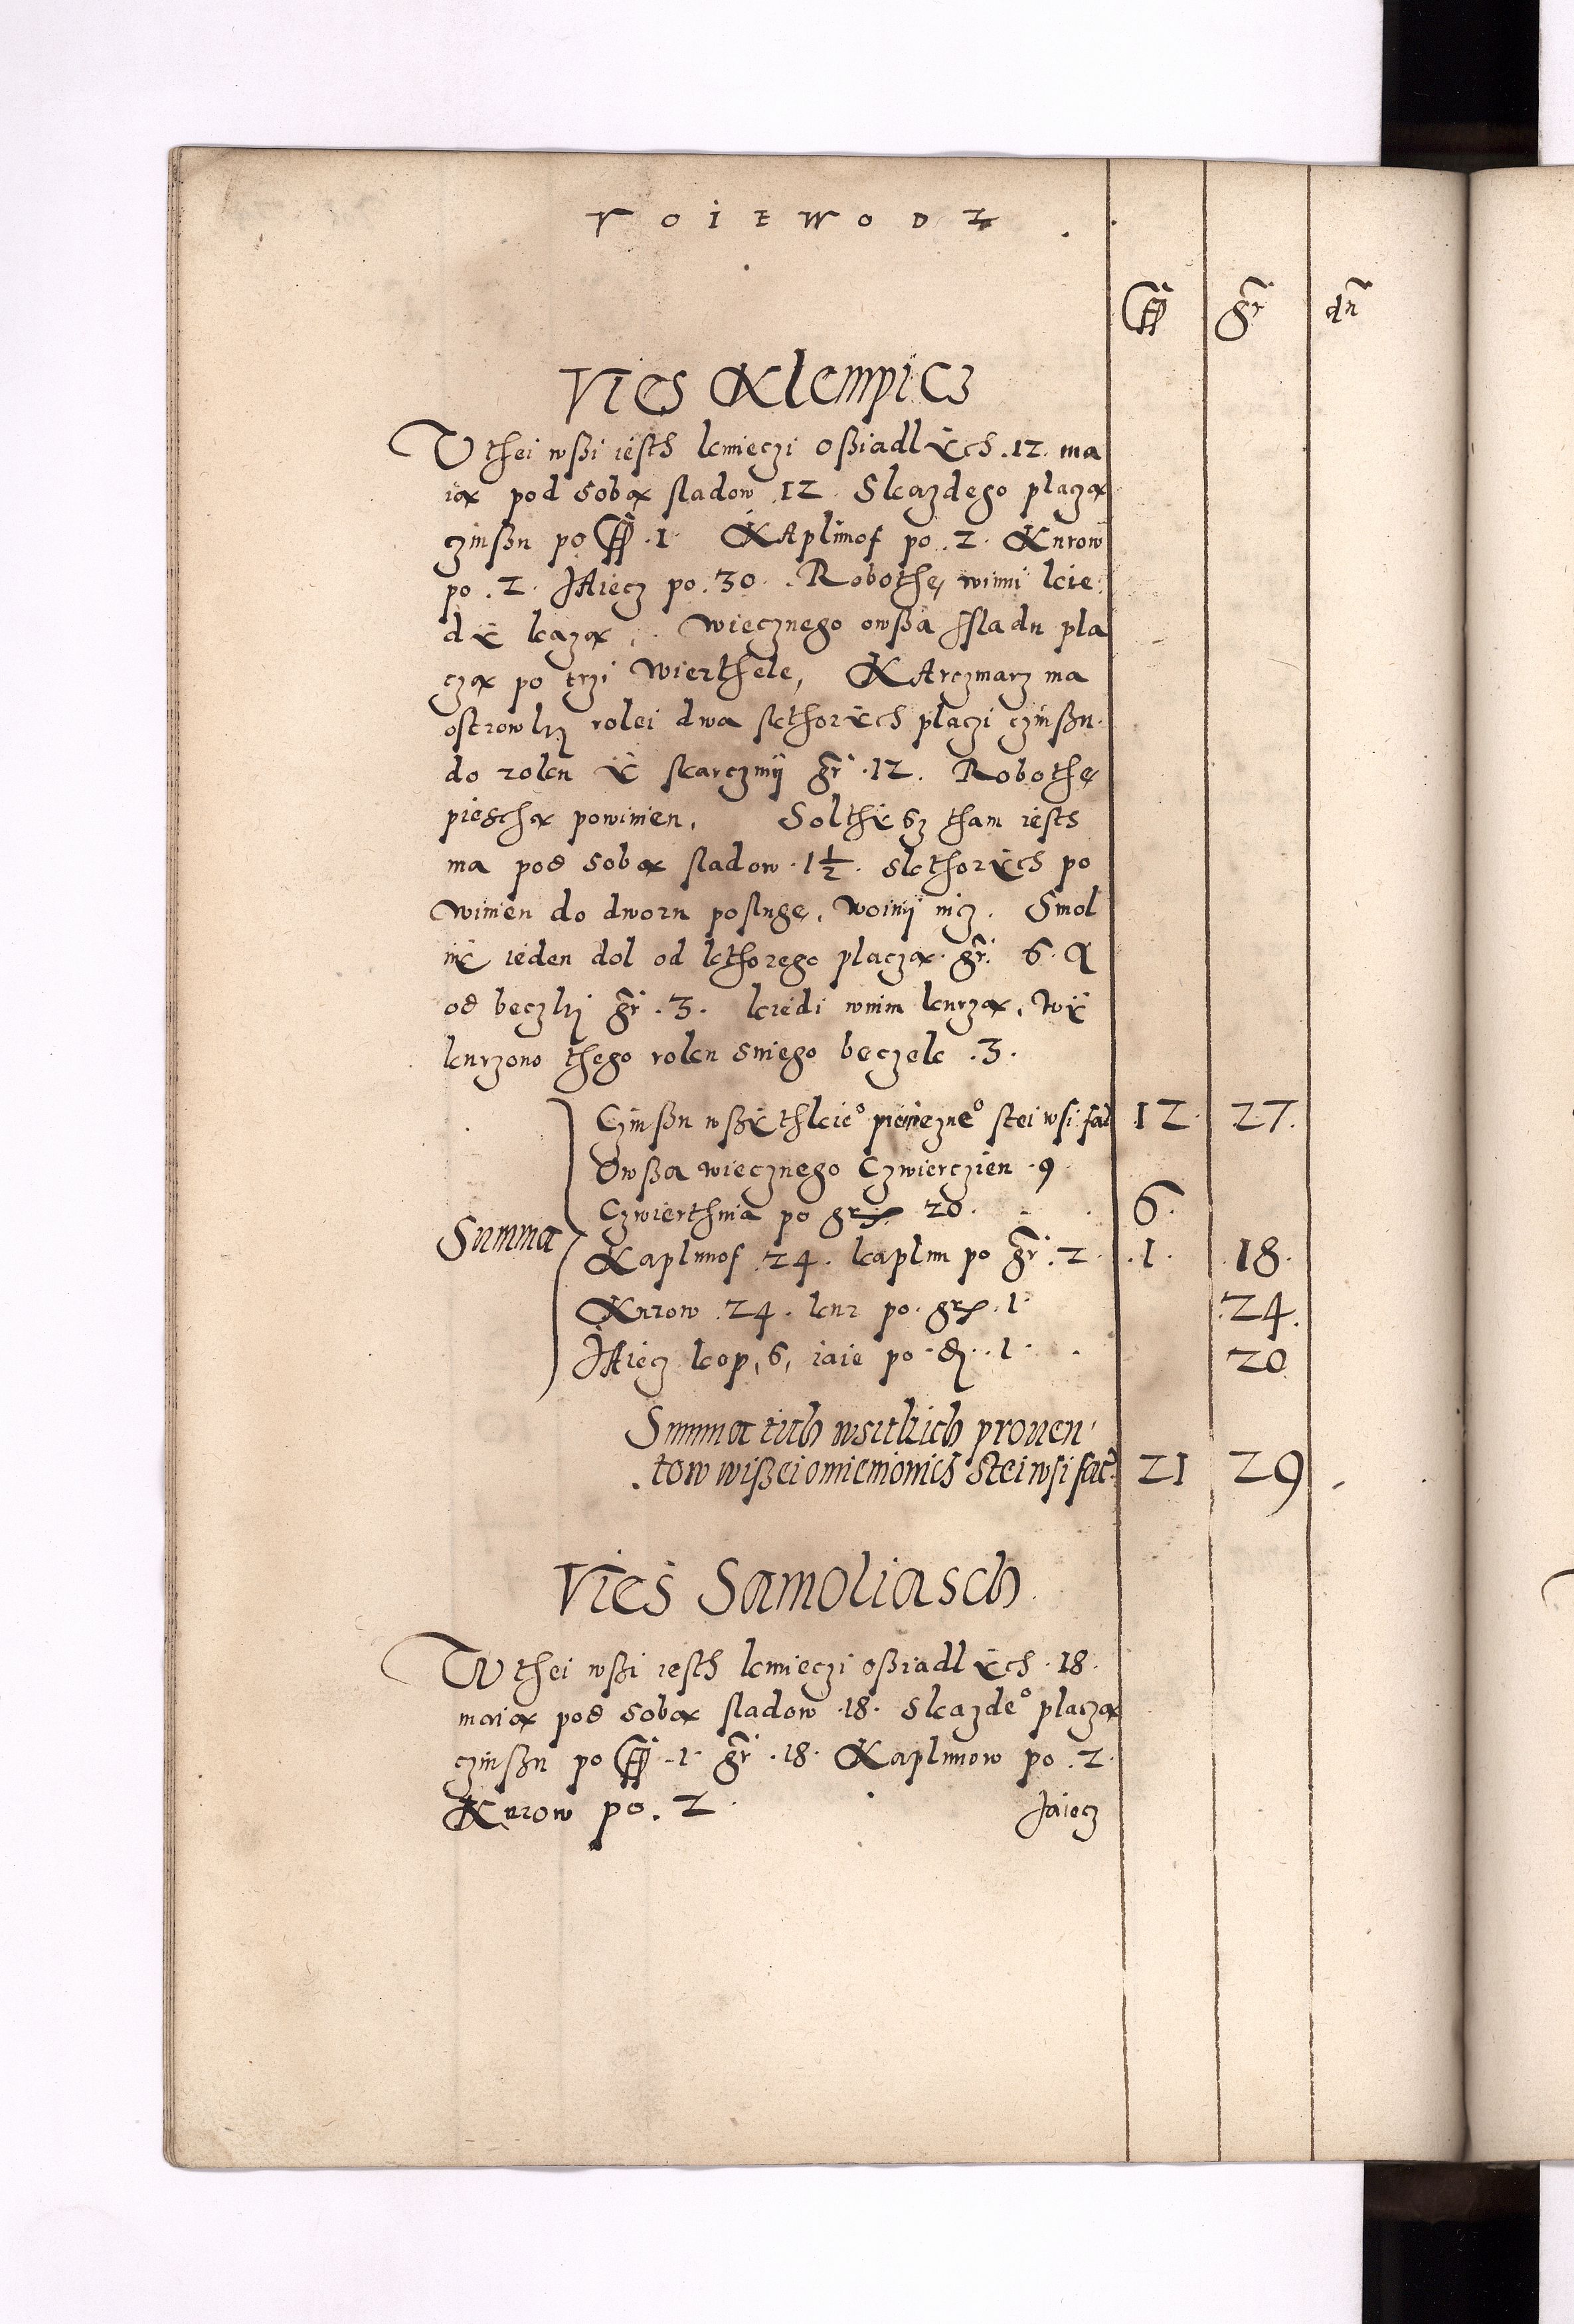 VOIEWODZ
fl gr dn
Vies Klempicz
W thei wßi iesth kmieczi oßiadlÿch .12. ma
ią pod sobą sladow .12. Skazdego placzą
czinßu po fl .1. KAplunof po .2. Kurow
po .2. JAiecz po .30. Robothę winni kie
dÿ kazą, Wiecznego owßa sladu pla
czą po trzi Wierthele, KArczmarz ma
ostrowki rolei dwa skthorÿch placzi czinßu.
do roku ÿ skarczmÿ gr .12. Robothę
pieschą powinien. Solthÿsz tham iesth
ma pod sobą sladow .1½. skthorÿch po
winien do dworu poslugę, Woinÿ nicz. Smol
nÿ ieden dol od kthorego placzą gr. 6. A
od beczki gr .3. kiedi wnim kurzą, Wÿ
kurzono thego roku sniego beczek .3.
Czinßu wßÿthkie° pieniezne° stei wsi fac 12 27.
Owßa wiecznego Czwierczien .9
Czwierthnia po gr 20. 6.
Summa
Kaplunof .24. kaplun po gr .2. .1. 18.
Kurow .24. kur po gr .1. .24.
JAiecz kop, 6, iaie po d .1. 20
Summa tich wsitkich prouen
tow wißei omienionich stei wsi fac 21 29
Vies Samoliasch.
W thei wßi iesth kmieczi oßiadlÿch .18.
maią pod sobą sladow .18. skazde° placzą
czinßu po fl .1. gr .18. Kaplunow po .2.
Kurow po .2. Jaiecz